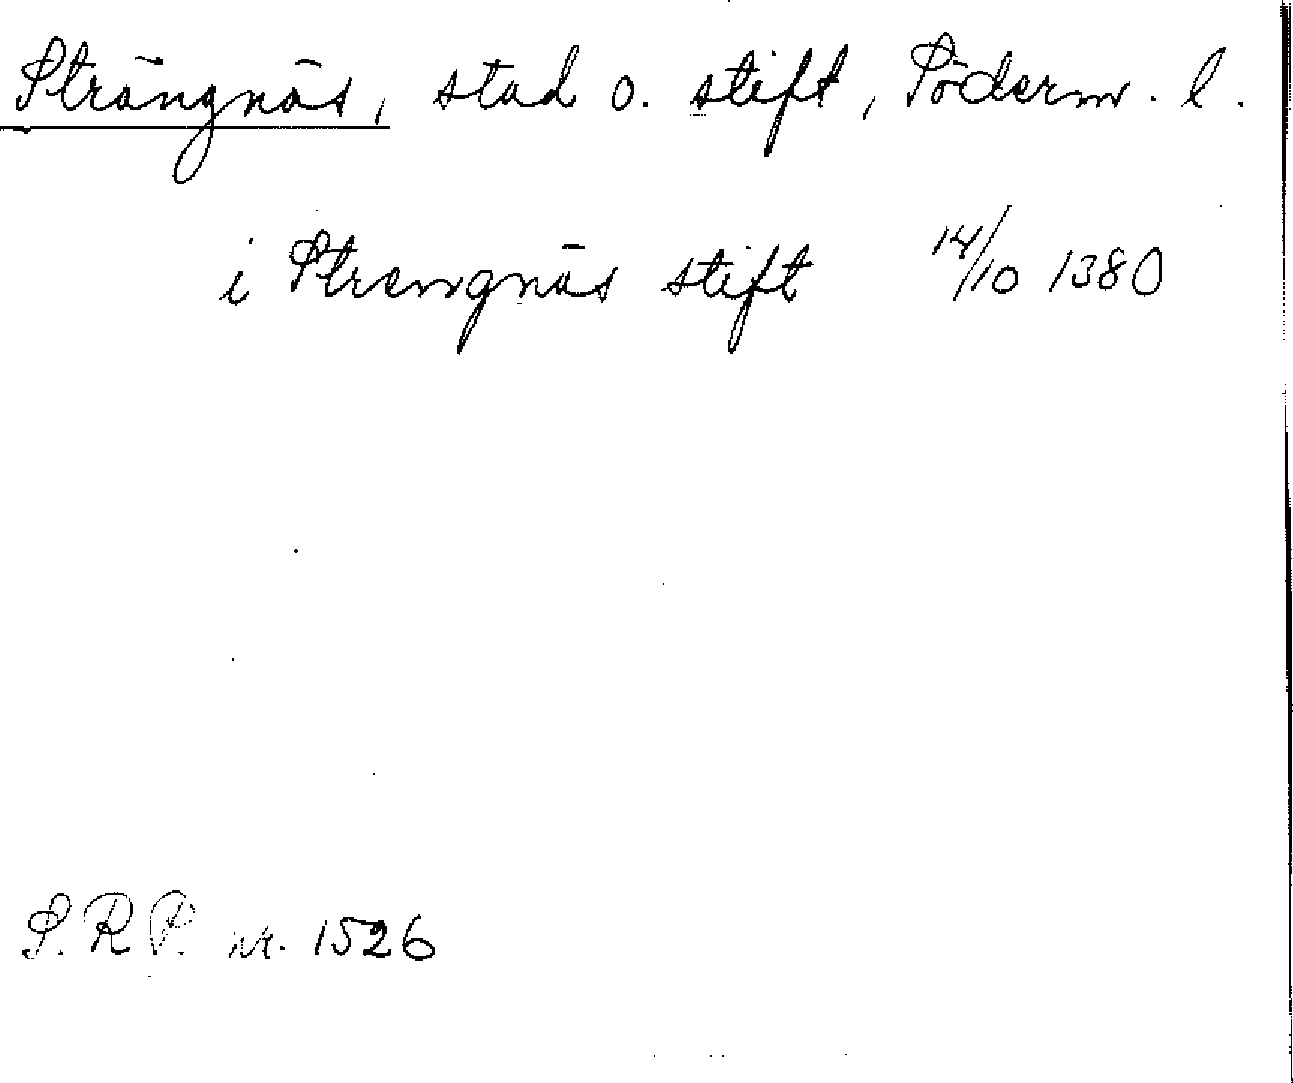 Strängnäs, stad o. stift, Söderm. l.
i Strengnäs stift 14/10 1380
S.R.P. nr. 1526